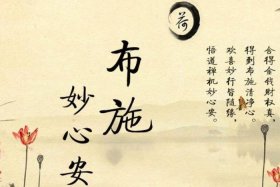 舍得金钱财权真，
得到布施清净心。
欢喜妙行皆随缘，
悟道禅机妙心安。
荷
布施
妙心安